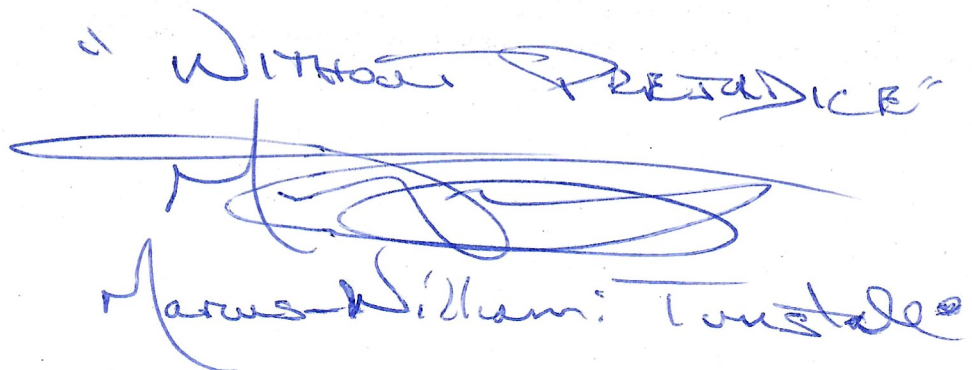 "WITHOUT PREJUDICE"
Marcus-William: Tunstall